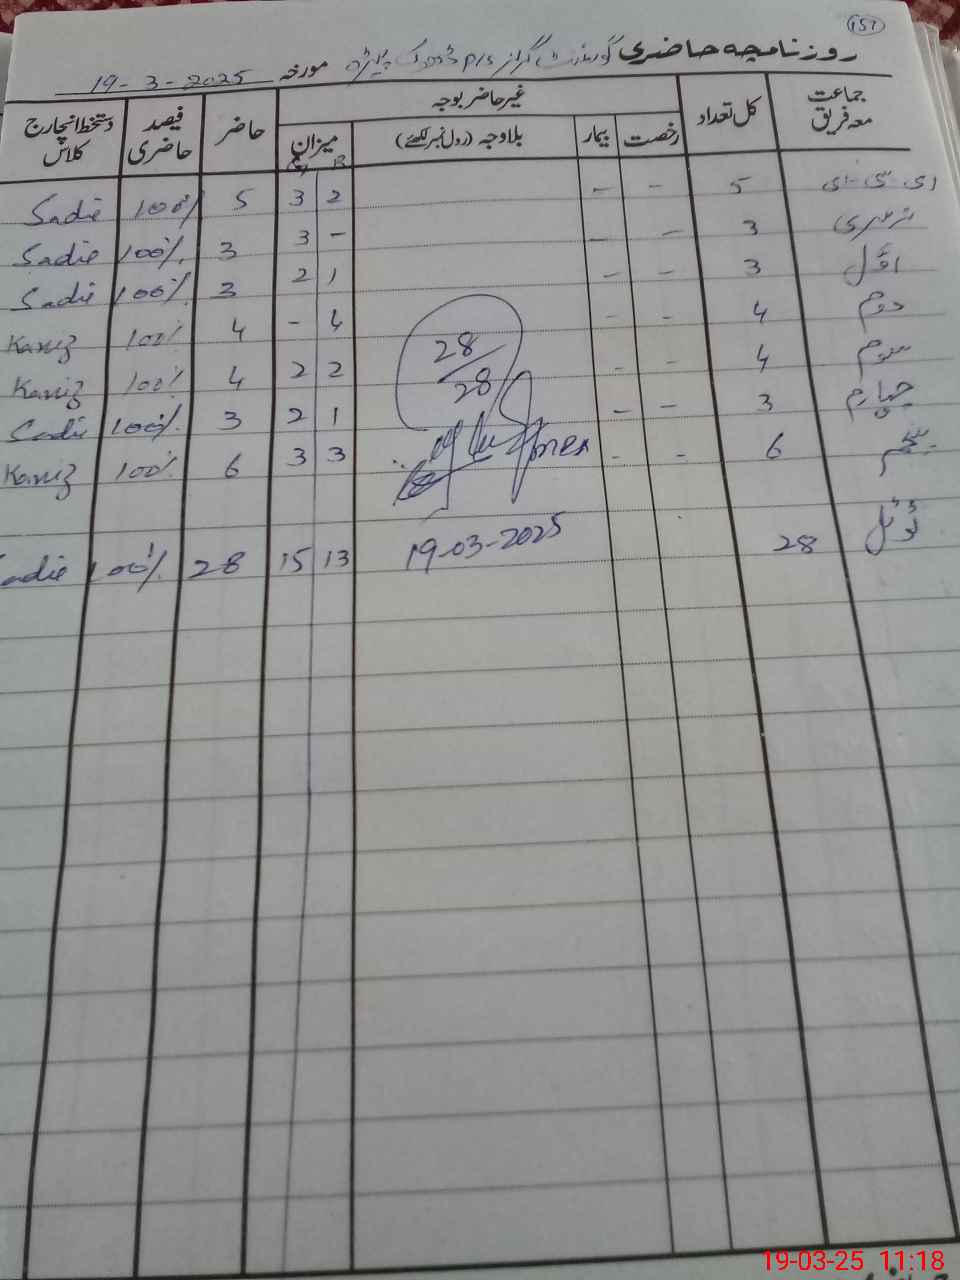 151
روزنامچہ حاضری گورنمنٹ گرلز P/S ڈھوک مورخہ 19-3-2025
جماعت معہ فریق کل تعداد غیر حاضر بوجہ حاضر فیصد حاضری دستخط انچارج کلاس
رخصت بیمار بلاوجہ (رول نمبر لکھئے) میزان
B
ای سی ای 5 - - 2 3 5 100% Sadie
نرسری 3 - - - 3 3 100% Sadie
اوّل 3 - - 1 2 3 100% Sadie
دوم 4 - - 4 - 4 100% Kaniz
سوم 4 - - 2 2 4 100% Kaniz
چہارم 3 - - 1 2 3 100% Sadie
پنجم 6 - - 3 3 6 100% Kaniz
28/28
19-03-2025
ٹوٹل 28 13 15 28 100% Sadie
19-03-25 11:18